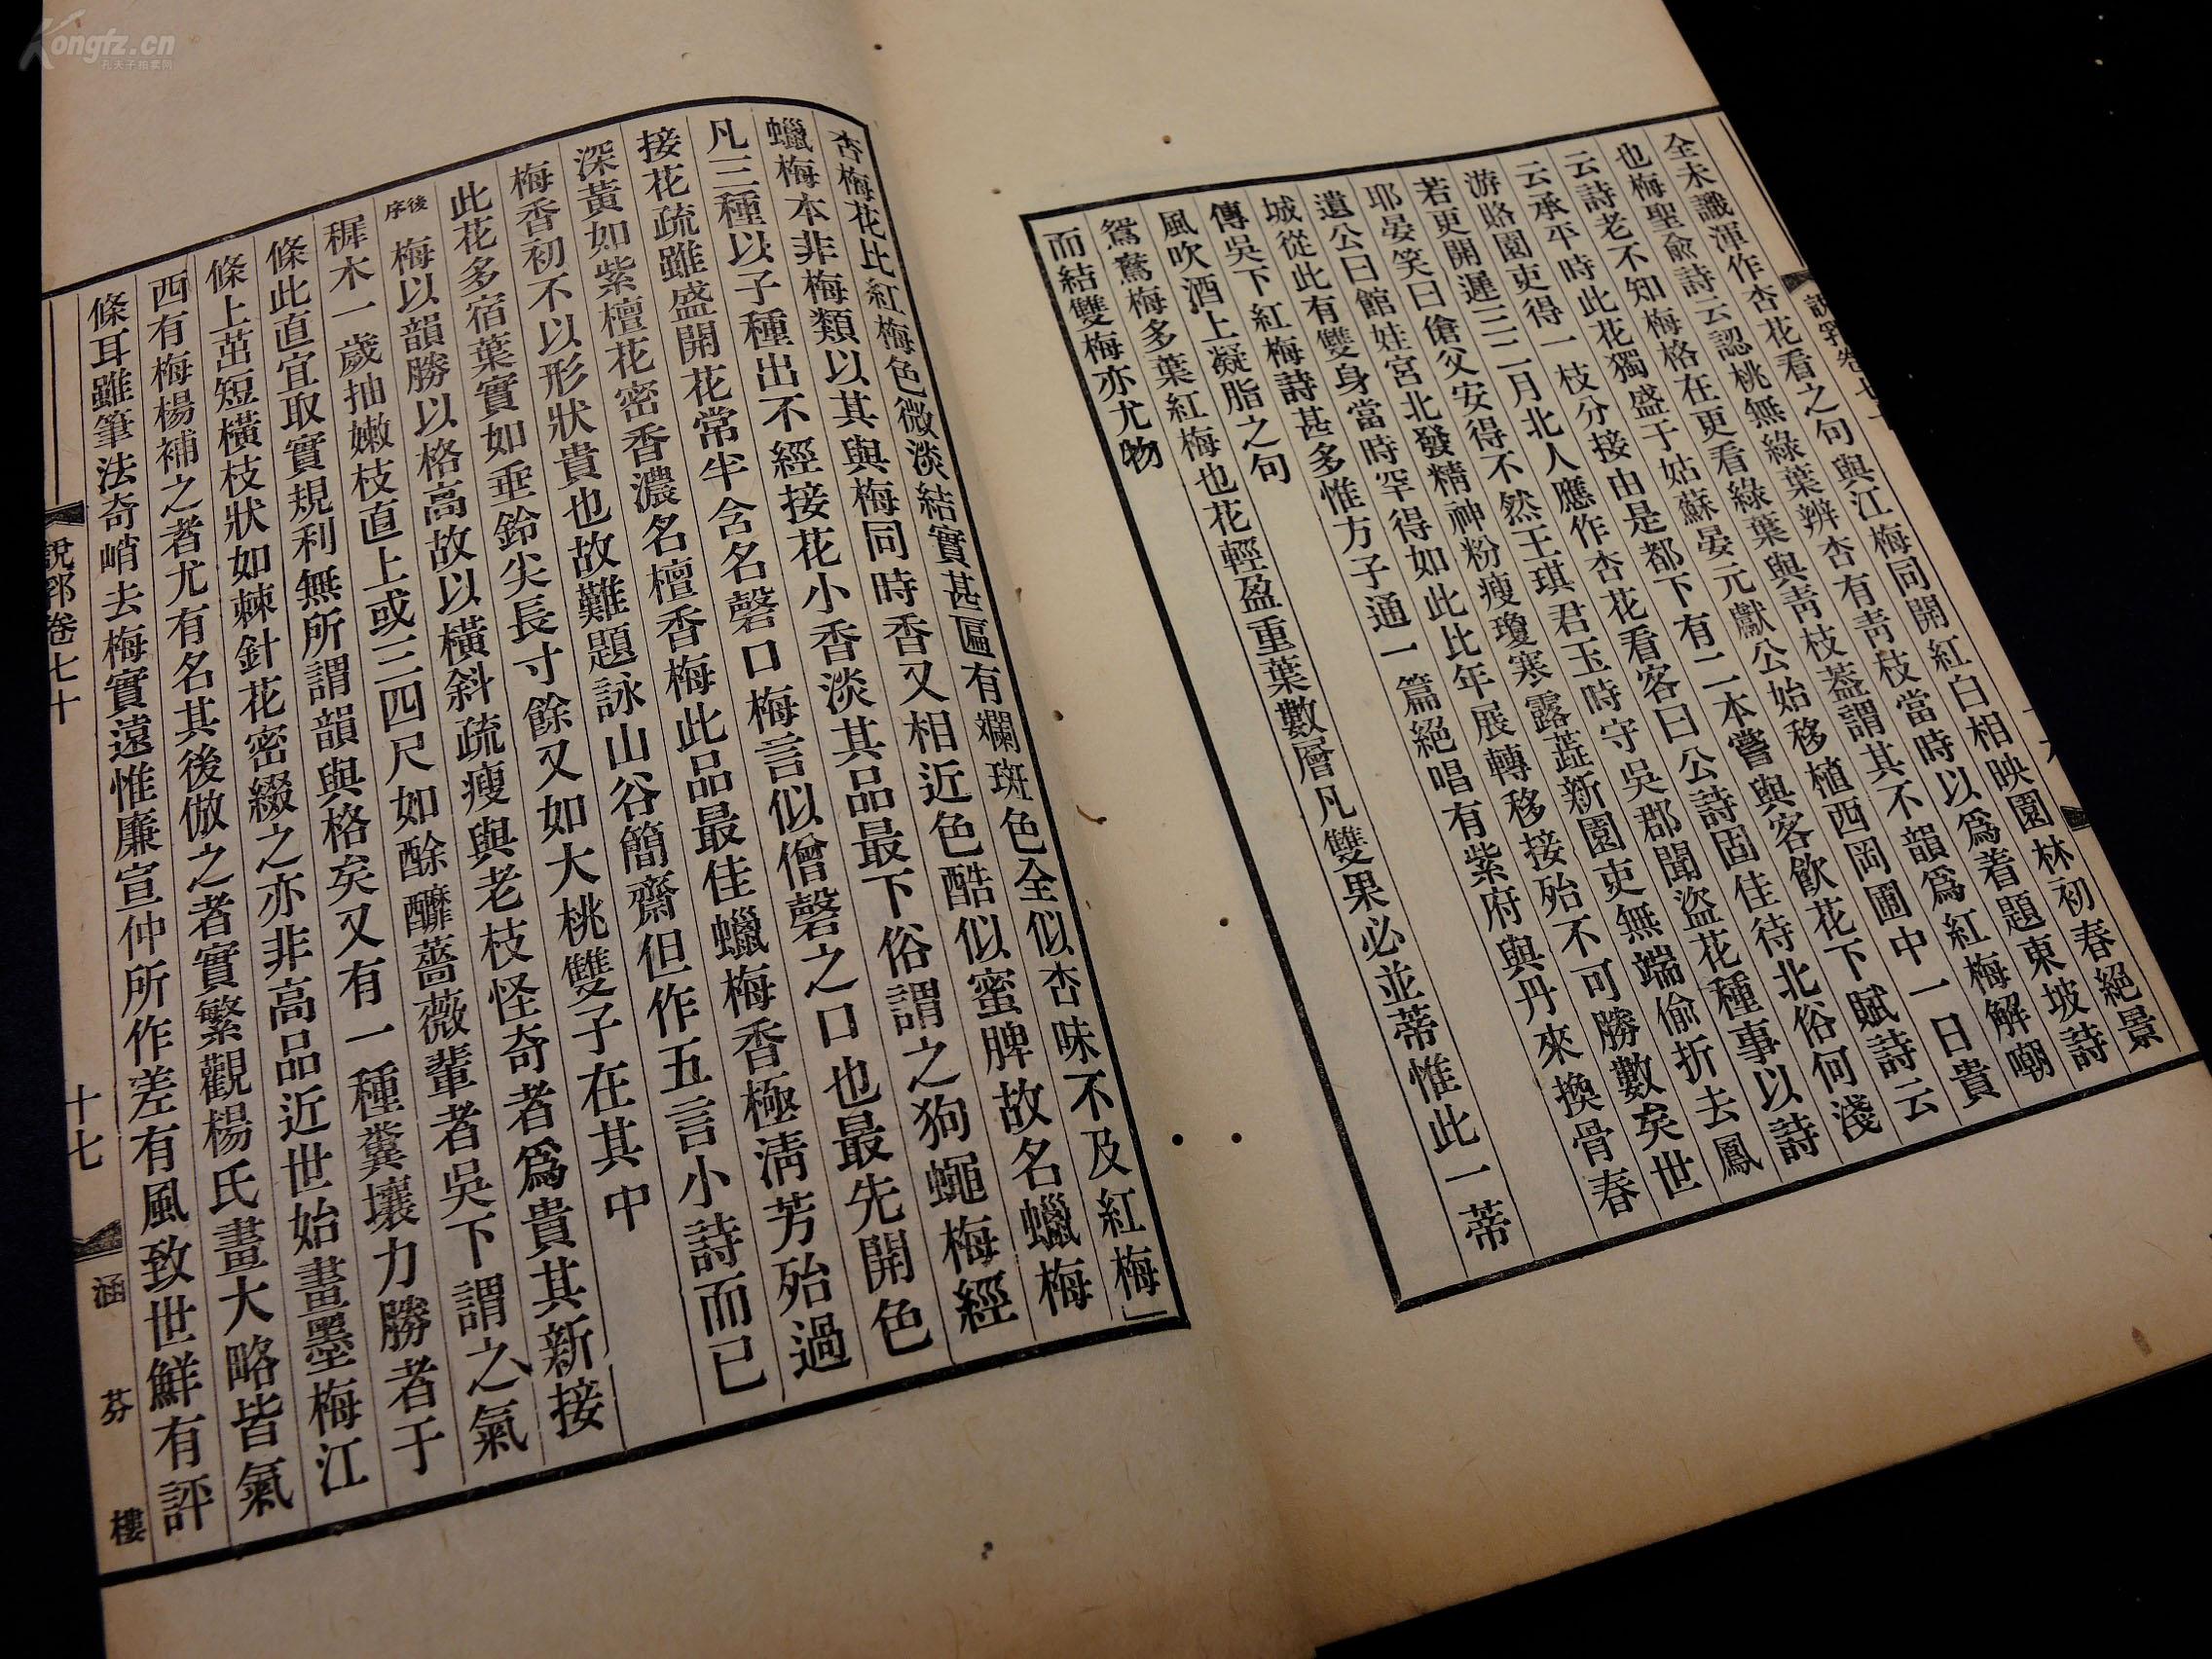 全未識渾作杏花看之句與江梅同開紅白相映園林初春絕景
也梅聖俞詩云認桃無綠葉辨杏有青枝當時以爲着題東坡詩
云詩老不知梅格在更看綠葉與青枝蓋謂其不韻爲紅梅解嘲
云承平時此花獨盛于姑蘇晏元獻公始移植西岡圃中一日貴
游賂園吏得一枝分接由是都下有二本嘗與客飲花下賦詩云
若更開遲三二月北人應作杏花看客曰公詩固佳待北俗何淺
耶晏笑曰傖父安得不然王琪君玉時守吳郡聞盜花種事以詩
遺公曰館娃宮北發精神粉瘦瓊寒露蕋新園吏無端偷折去鳳
城從此有雙身當時罕得如此比年展轉移接殆不可勝數矣世
傳吳下紅梅詩甚多惟方子通一篇絕唱有紫府與丹來換骨春
風吹酒上凝脂之句
鴛鴦梅多葉紅梅也花輕盈重葉數層凡雙果必並蒂惟此一蒂
而結雙梅亦尤物
杏梅花比紅梅色微淡結實甚匾有斕斑色全似杏味不及紅梅」
蠟梅本非梅類以其與梅同時香又相近色酷似蜜脾故名蠟梅
凡三種以子種出不經接花小香淡其品最下俗謂之狗蠅梅經
接花疏雖盛開花常半含名磬口梅言似僧磬之口也最先開色
深黃如紫檀花密香濃名檀香梅此品最佳蠟梅香極清芳殆過
梅香初不以形狀貴也故難題詠山谷簡齋但作五言小詩而已
此花多宿葉實如垂鈴尖長寸餘又如大桃雙子在其中
後序 梅以韻勝以格高故以橫斜疏瘦與老枝怪奇者爲貴其新接
穉木一歲抽嫩枝直上或三四尺如酴醿薔薇輩者吳下謂之氣
條此直宜取實規利無所謂韻與格矣又有一種糞壤力勝者于
條上茁短橫枝狀如棘針花密綴之亦非高品近世始畫墨梅江
西有梅楊補之者尤有名其後倣之者實繁觀楊氏畫大略皆氣
條耳雖筆法奇峭去梅實遠惟廉宣仲所作差有風致世鮮有評
說郛卷七十
十七
涵芬樓
Kongfz.cn